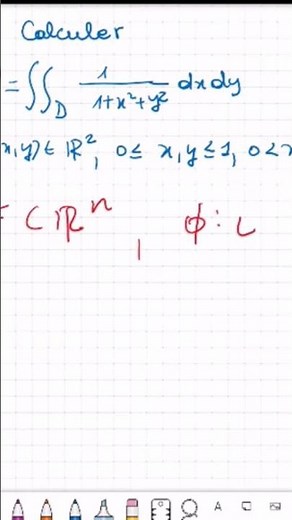 Calculer
= ∬_D 1/(1+x²+y²) dx dy
x,y) ∈ ℝ², 0 ≤ x,y ≤ 1, 0 <
⊂ ℝⁿ, ϕ :
A